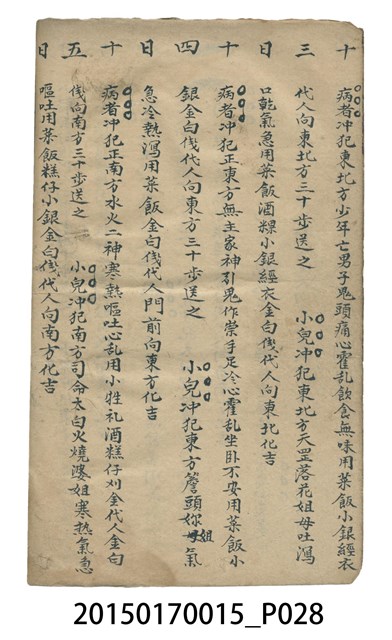 十　病者冲犯東北方少年亡男子鬼頭痛心霍乱飲食無味用菜飯小銀經衣
三　代人向東北方三十步送之　小兒冲犯東北方天罡落花姐母吐瀉
日　口乾氣急用菜飯酒粿小銀經衣金白伐代人向東北化吉
十　病者冲犯正東方無主家神引鬼作祟手足冷心霍乱坐卧不安用菜飯小
四　銀金白伐代人向東方三十步送之　小兒冲犯東方簷頭姐氣
日　急冷熱瀉用菜飯金白伐代人門前向東方化吉
十　病者冲犯正南方水火二神寒熱嘔吐心乱用小牲礼酒糕仔刈金代人金白
五　伐向南方三十步送之　小兒冲犯南方司命太白火燒婆姐寒熱氣急
日　嘔吐用菜飯糕仔小銀金白伐代人向南方化吉
20150170015_P028